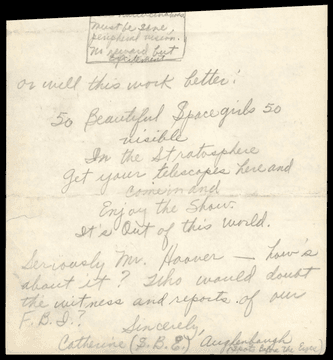 must be sane,
peripheral vision.
No reward but
or will this work better:
50 Beautiful Spacegirls 50
visible
In the Stratosphere
Get your telescopes here and
come in and
Enjoy the Show.
It's Out of this World.
Seriously Mr. Hoover — how's
about it? Who would doubt
the witness and reports of our
F.B.I.?
Sincerely,
Catherine (S.B.E.)
(Spots Before the Eyes)